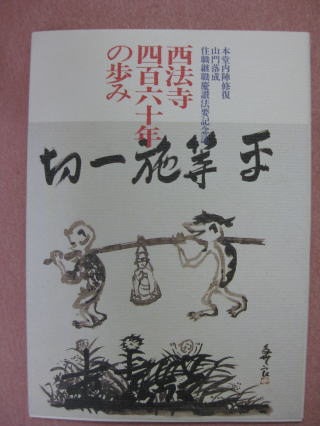 本堂内陣修復
山門落成
住職継職慶讃法要記念
西法寺
四百六十年
の歩み
平等施一切